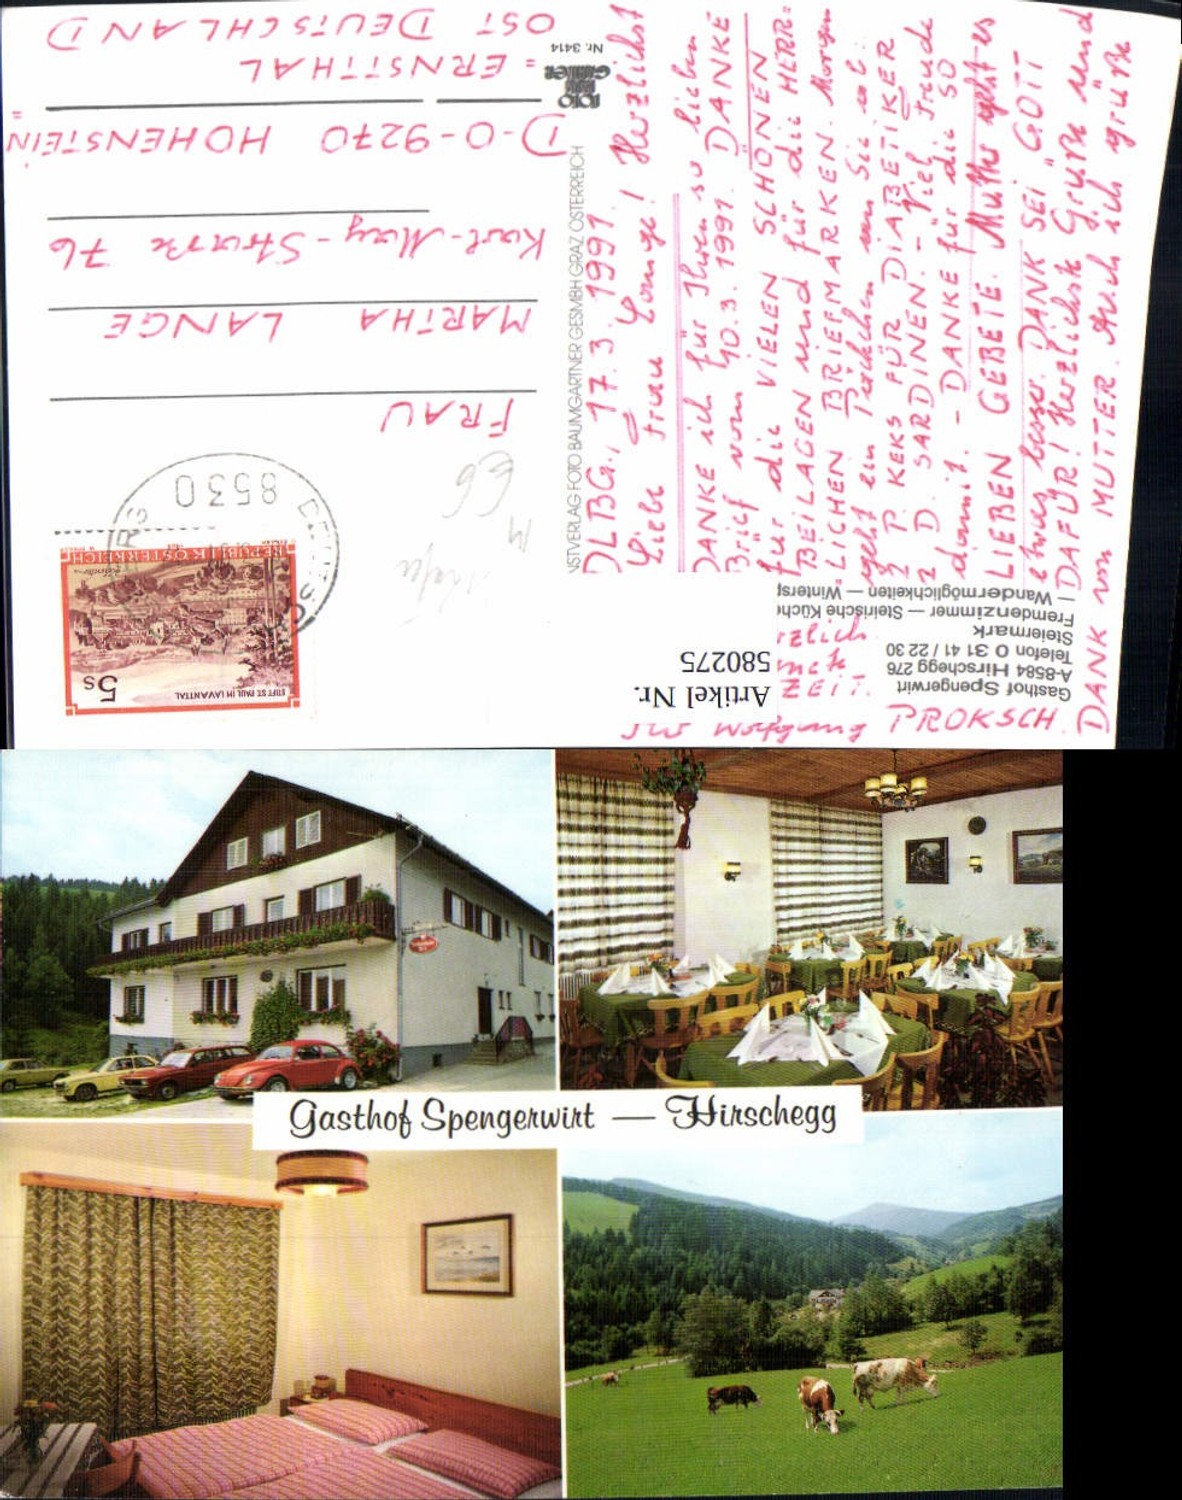 DLBG., 17.3.1991.
Liebe Frau Lange! Herzlichst
DANKE ich für Ihren so lieben
Brief vom 10.3.1991. DANKE
für die VIELEN SCHÖNEN
BEILAGEN und für die HERR=
LICHEN BRIEFMARKEN. Morgen
geht ein Packchen an Sie ab:
2 P. KEKS FÜR DIABETIKER
2 D. SARDINEN. - Viel Freude
damit. - DANKE für die SO
LIEBEN GEBETE. Mutter geht es
etwas besser. DANK SEI GOTT
DAFÜR! Herzlichste Grüße und
DANK von MUTTER. Auch ich grüße
PROKSCH.
ZEIT.
FRAU
MARTHA LANGE
Karl-May-Strasse 76
D-O-9270 HOHENSTEIN=
=ERNSTTHAL
OST DEUTSCHLAND
8530
REPUBLIK ÖSTERREICH
5s
STIFT ST. PAUL IM LAVANTTAL
Nr. 3414
NSTVERLAG FOTO BAUMGARTNER GESMBH GRAZ ÖSTERREICH
Gasthof Spengerwirt
A-8584 Hirschegg 276
Telefon 0 31 41 / 22 30
Steiermark
Fremdenzimmer — Steirische Küche
— Wandermöglichkeiten — Wintersp
Artikel Nr.
580275
Gasthof Spengerwirt — Hirschegg